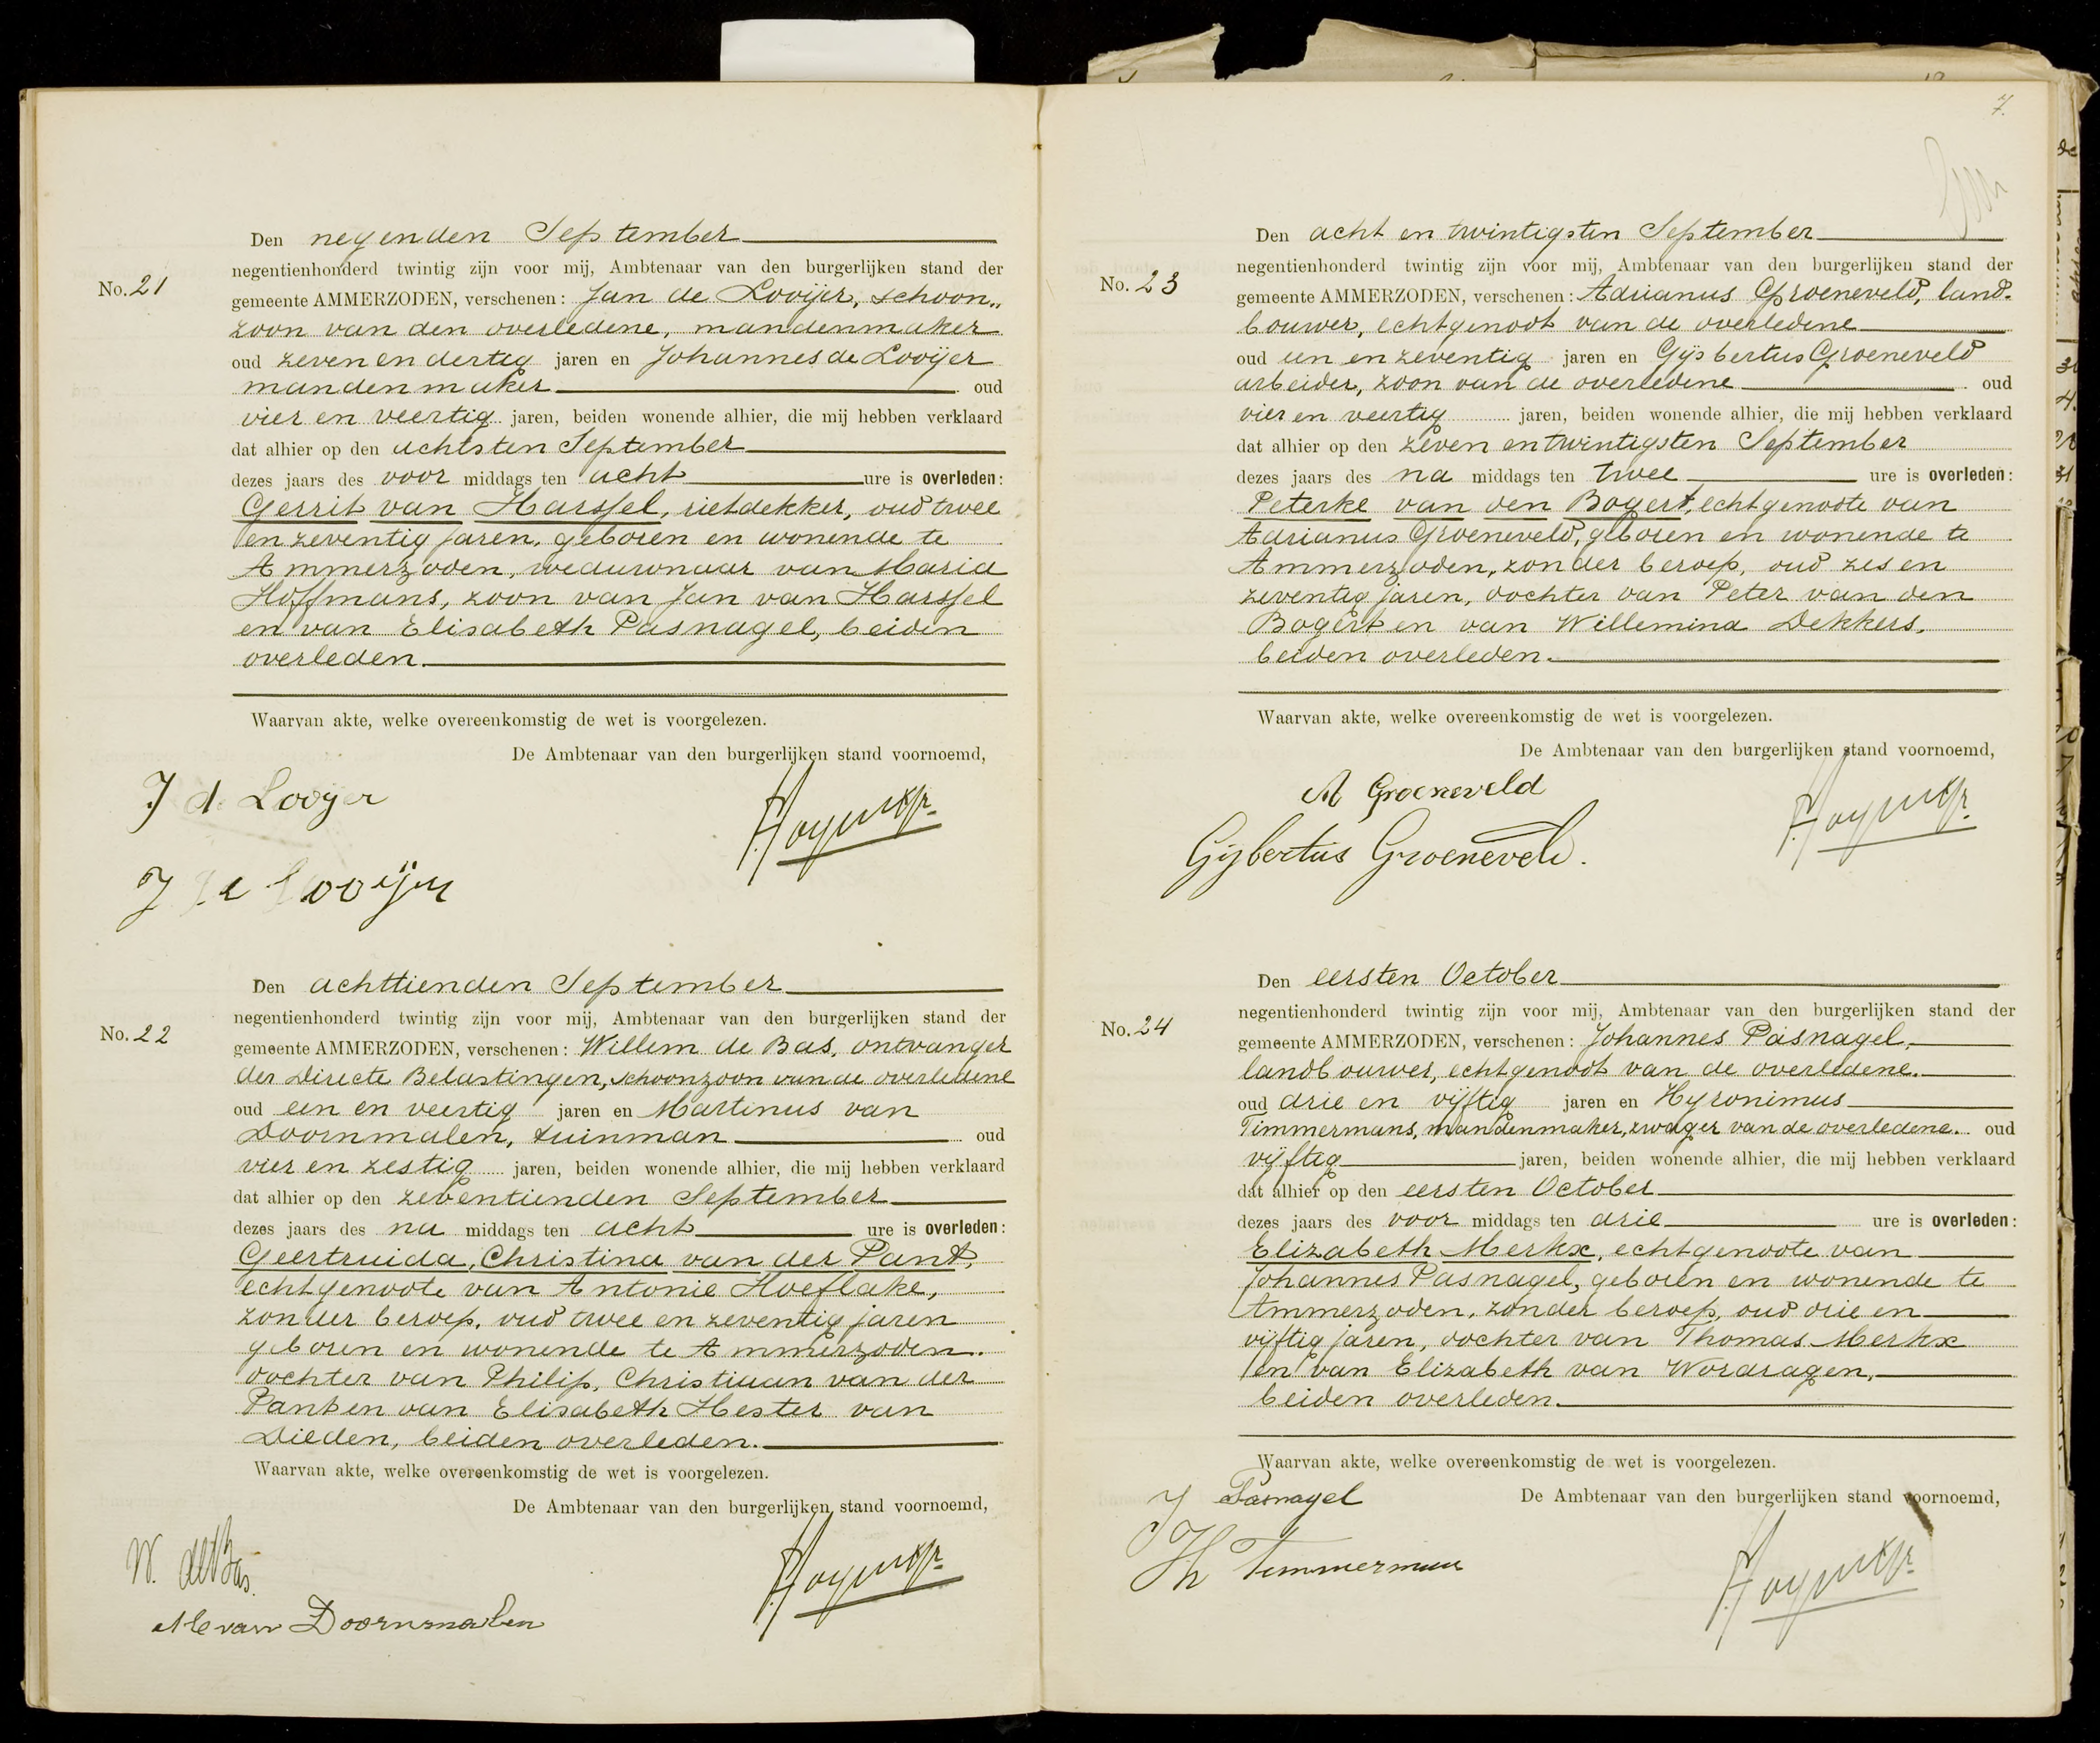 Den negenden September
No. 21
negentienhonderd twintig zijn voor mij, Ambtenaar van den burgerlijken stand der
gemeente AMMERZODEN, verschenen: Jan de Looijer, schoon„
zoon van den overledene, mandenmaker
oud zeven en dertig jaren en Johannes de Looijer
mandenmaker oud
vier en veertig jaren, beiden wonende alhier, die mij hebben verklaard
dat alhier op den achtsten September
dezes jaars des voor middags ten acht ure is overleden:
Gerrit van Harssel, rietdekker, oud twee
en zeventig jaren, geboren en wonende te
Ammerzoden, weduwnaar van Maria
Hoffmans, zoon van Jan van Harssel
en van Elisabeth Pasnagel, beiden
overleden.
Waarvan akte, welke overeenkomstig de wet is voorgelezen.
De Ambtenaar van den burgerlijken stand voornoemd,
J de Looyer
J de Looijer
Den achttienden September
No. 22
negentienhonderd twintig zijn voor mij, Ambtenaar van den burgerlijken stand der
gemeente AMMERZODEN, verschenen: Willem de Bas, ontvanger
der Directe Belastingen, schoonzoon van de overledene
oud een en veertig jaren en Martinus van
Doornmalen, tuinman oud
vier en zestig jaren, beiden wonende alhier, die mij hebben verklaard
dat alhier op den zeventienden September
dezes jaars des na middags ten acht ure is overleden:
Geertruida, Christina van der Pant,
echtgenoote van Antonie Hoeflake,
zonder beroep, oud twee en zeventig jaren
geboren en wonende te Ammerzoden.
dochter van Philip, Christiaan van der
Pant en van Elisabeth Hester van
Dieden, beiden overleden.
Waarvan akte, welke overeenkomstig de wet is voorgelezen.
De Ambtenaar van den burgerlijken stand voornoemd,
W. de Bas.
M van Doornmalen
7.
Den acht en twintigsten September
No. 23
negentienhonderd twintig zijn voor mij, Ambtenaar van den burgerlijken stand der
gemeente AMMERZODEN, verschenen: Adrianus Groeneveld, land-
bouwer, echtgenoot van de overledene
oud een en zeventig jaren en Gijsbertus Groeneveld
arbeider, zoon van de overledene oud
vier en veertig jaren, beiden wonende alhier, die mij hebben verklaard
dat alhier op den zeven en twintigsten September
dezes jaars des na middags ten twee ure is overleden:
Peterke van den Bogert, echtgenoote van
Adrianus Groeneveld, geboren en wonende te
Ammerzoden, zonder beroep, oud zes en
zeventig jaren, dochter van Peter van den
Bogert en van Willemina Dekkers,
beiden overleden.
Waarvan akte, welke overeenkomstig de wet is voorgelezen.
De Ambtenaar van den burgerlijken stand voornoemd,
A Groeneveld
Gijbertus Groeneveld.
Den eersten October
No. 24
negentienhonderd twintig zijn voor mij, Ambtenaar van den burgerlijken stand der
gemeente AMMERZODEN, verschenen: Johannes Pasnagel,
landbouwer, echtgenoot van de overledene.
oud drie en vijftig jaren en Hyronimus
Timmermans, mandenmaker, zwager van de overledene. oud
vijftig jaren, beiden wonende alhier, die mij hebben verklaard
dat alhier op den eersten October
dezes jaars des voor middags ten drie ure is overleden:
Elizabeth Merkx, echtgenoote van
Johannes Pasnagel, geboren en wonende te
Ammerzoden, zonder beroep, oud drie en
vijftig jaren, dochter van Thomas Merkx
en van Elizabeth van Wordragen,
beiden overleden.
Waarvan akte, welke overeenkomstig de wet is voorgelezen.
De Ambtenaar van den burgerlijken stand voornoemd,
J Pasnagel
H Timmerman